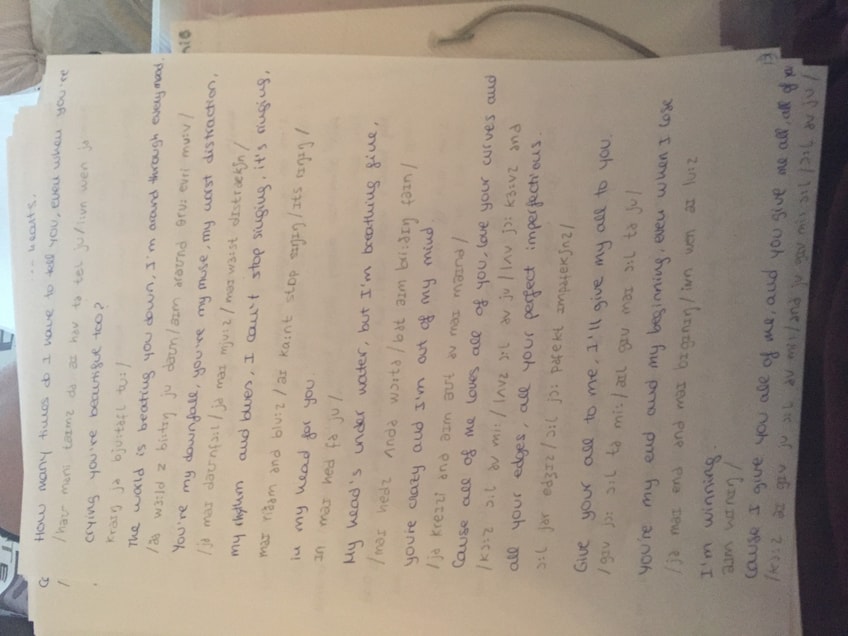 ... hearts.
How many times do I have to tell you, even when you're
/haʊ meni taɪmz də aɪ hav tə tel ju/iːvn wen jə
crying you're beautiful too?
kraɪŋ jə bjuːtəfl tuː/
The world is beating you down, I'm around through every mood.
/ðə wɜːld z biːtɪŋ ju daʊn/aɪm əraʊnd θruː evri muːv/
You're my downfall, you're my muse, my worst distraction,
/jə maɪ daʊnfɔːl/jə maɪ mjuːz/maɪ wɜːst dɪstrækʃn/
my rhythm and blues, I can't stop singing, it's ringing,
maɪ rɪðəm and bluːz/aɪ kaːnt stɒp sɪŋɪŋ/ɪts rɪŋɪŋ/
in my head for you.
ɪn maɪ hed fə ju/.
My head's under water, but I'm breathing fine,
/maɪ hedz ʌndə wɔːtə/bət aɪm briːðɪŋ faɪn/
you're crazy and I'm out of my mind
/jə kreɪzɪ ənd aɪm aʊt əv maɪ maɪnd/
Cause all of me loves all of you, love your curves and
/kɔːz ɔːl əv miː/lʌvz ɔːl əv ju/lʌv jɔː kɜːvz ənd
all your edges, all your perfect imperfections.
ɔːl jər edʒɪz/ɔːl jɔː pəfekt ɪmpəfekʃnz/
Give your all to me, I'll give my all to you.
/gɪv jɔː ɔːl tə miː/aɪl gɪv maɪ ɔːl tə ju/
you're my end and my beginning, even when I lose
/jə maɪ end ənd maɪ bɪgɪnɪŋ/iːvn wen aɪ luːz
I'm winning.
aɪm wɪnɪŋ/
Cause I give you all of me, and you give me all, all of
/kɔːz aɪ gɪv ju ɔːl əv miː/ənd ju gɪv miː ɔːl/ɔːl əv ju/